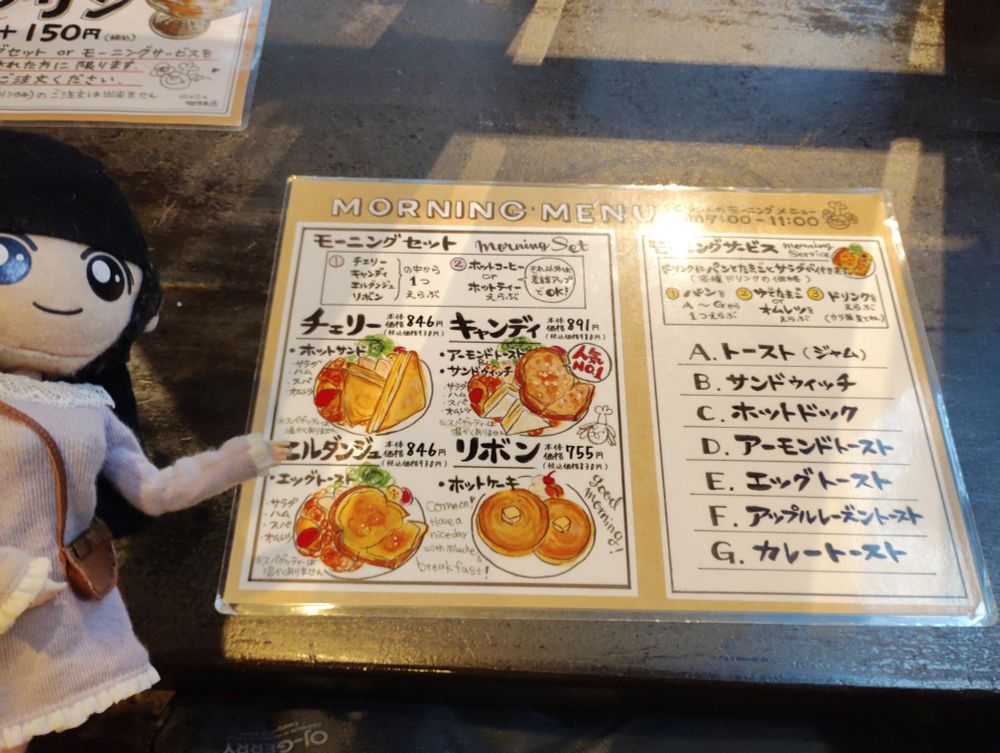 プリン
+150円(税込)
セット or モーニングサービスを
された方に限ります。
ご注文ください。
のご注文は出来ません。
MORNING MENU
モーニングメニュー
00-11:00
モーニングセット Morning Set
① チェリー
キャンディ
エルダンジュ
リボン
の中から
1つ
えらぶ
② ホットコーヒー
or
ホットティー
えらぶ
それ以外は
差額アップ
でOK!
チェリー 本体価格 846円
(税込価格930円)
・ホットサンド
・サラダ
・ハム
・スパ
・オムレツ
※スパゲッティーは
温かくありません
キャンディ 本体価格 891円
(税込価格980円)
・アーモンドトースト
・サンドウィッチ
サラダ
ハム
スパ
オムレツ
※スパゲッティーは
温かくありません
人気
NO.1
エルダンジュ 本体価格 846円
(税込価格930円)
・エッグトースト
・サラダ
・ハム
・スパ
・オムレツ
※スパゲッティーは
温かくありません
リボン 本体価格 755円
(税込価格830円)
・ホットケーキ
good
morning!
Come on!
Have a
nice day
with
breakfast!
モーニングサービス morning Service
ドリンクにパンとたまごとサラダが付きます
(各種ドリンクの価格)
① パンを
A〜Gから
1つえらぶ
② ゆでたまご
or
オムレツを
えらぶ
③ ドリンクを
えらぶ
A. トースト(ジャム)
B. サンドウィッチ
C. ホットドック
D. アーモンドトースト
E. エッグトースト
F. アップルレーズントースト
G. カレートースト